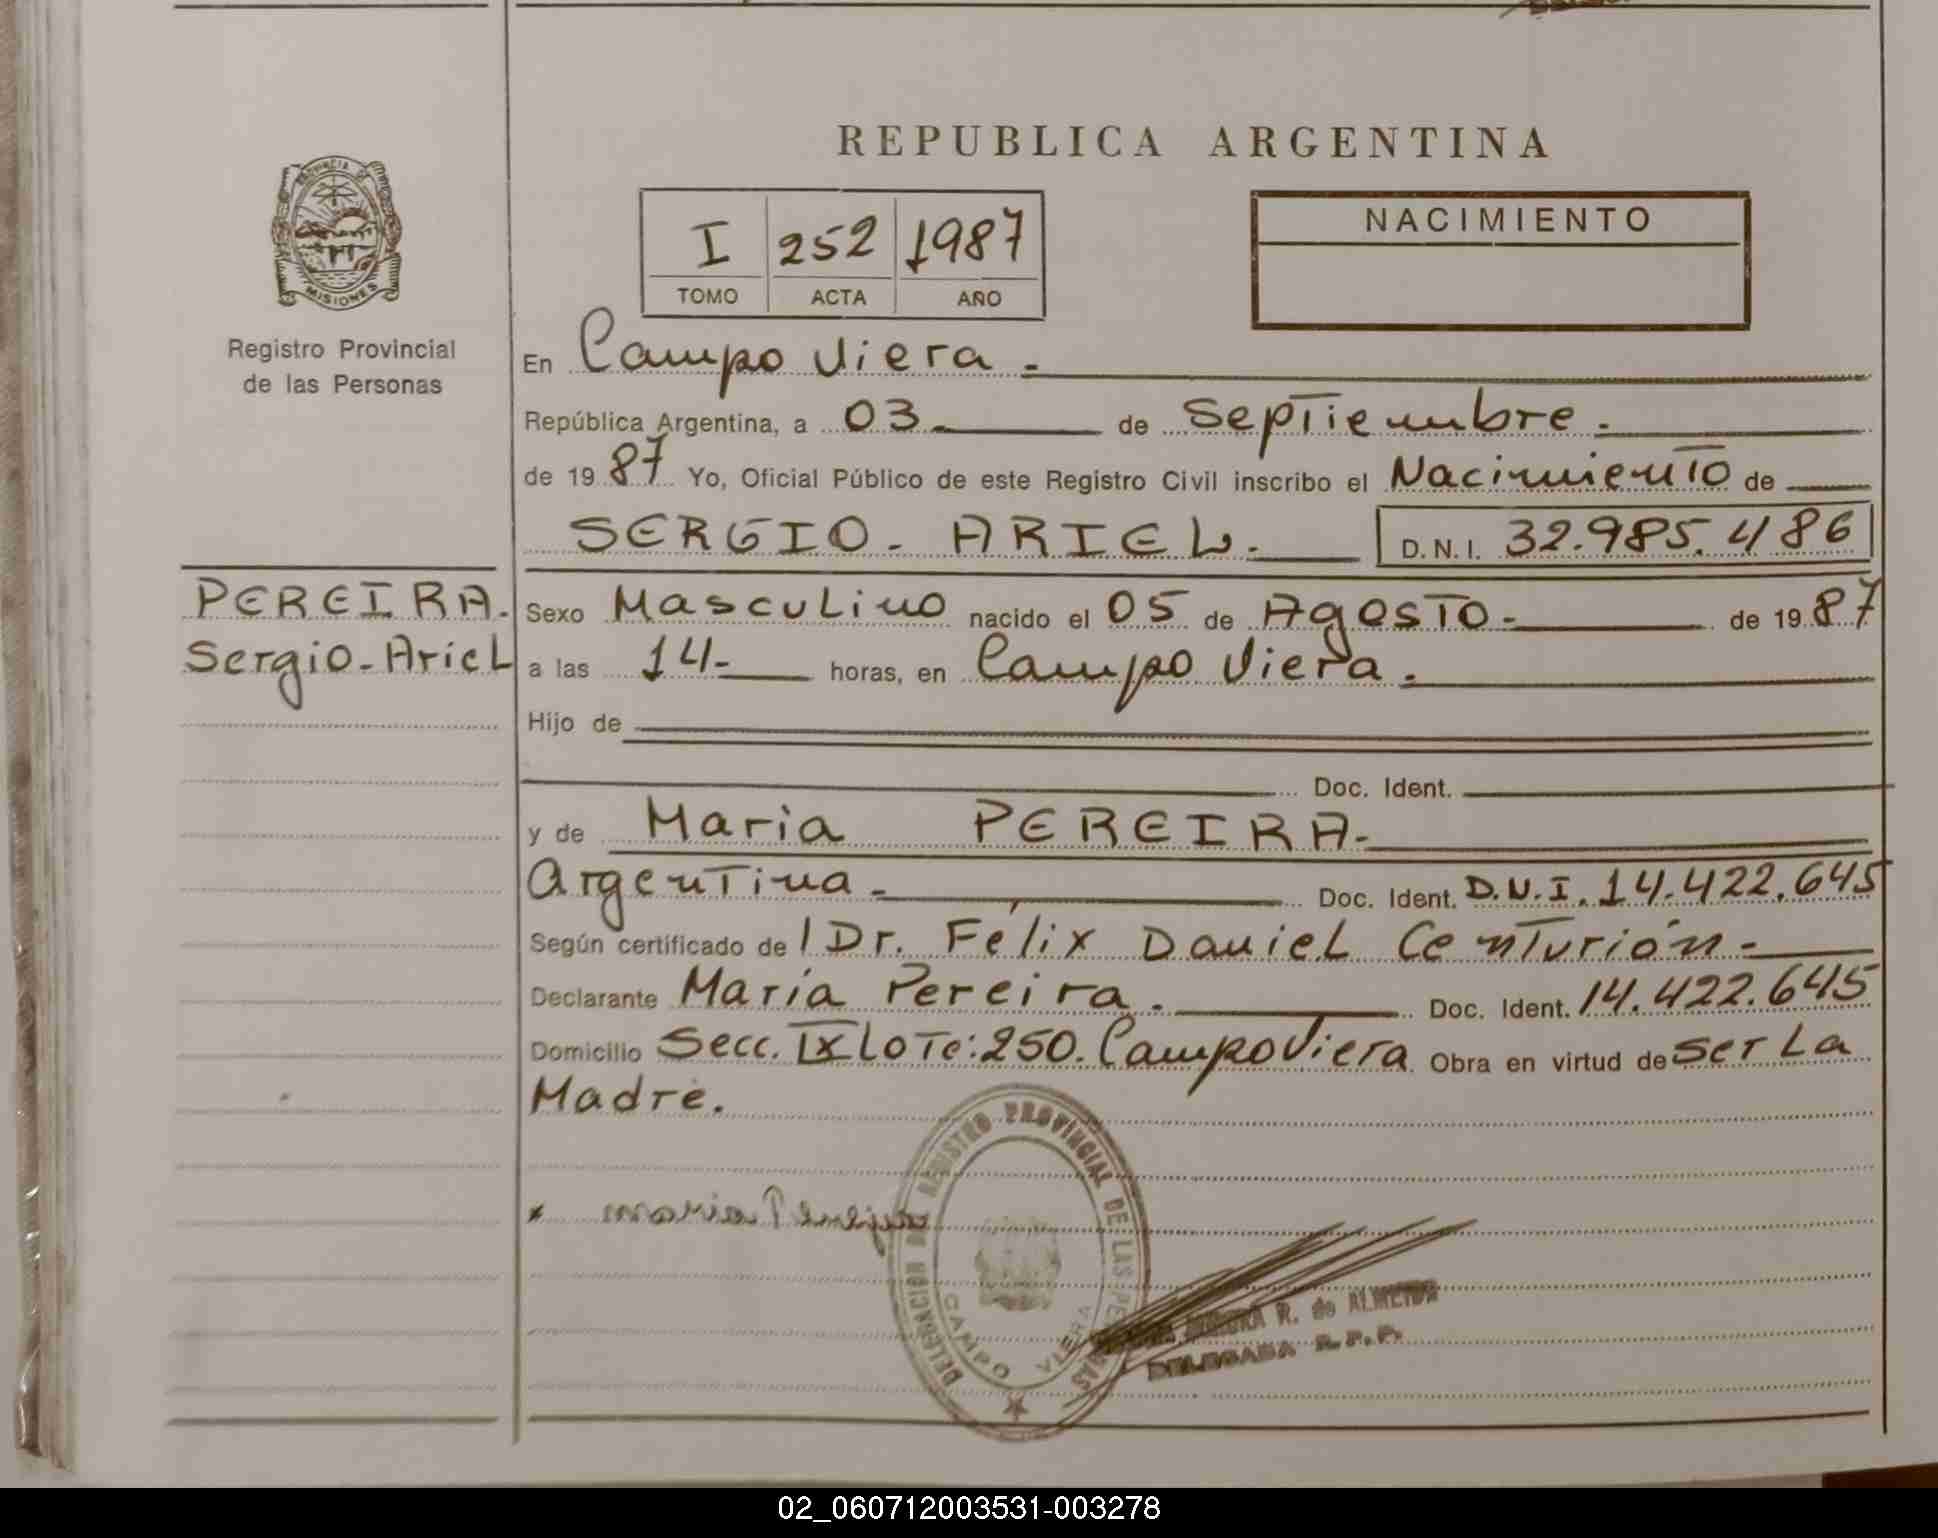 REPUBLICA ARGENTINA
PROVINCIA DE
MISIONES
Registro Provincial
de las Personas
I 252 1987
TOMO ACTA AÑO
NACIMIENTO
En Campo Viera.-
República Argentina, a 03.- de Septiembre.-
de 1987 Yo, Oficial Público de este Registro Civil inscribo el Nacimiento de
SERGIO - ARIEL.- D.N.I. 32.985.486
PEREIRA.
Sergio-Ariel
Sexo Masculino nacido el 05 de Agosto.- de 1987
a las 14.- horas, en Campo Viera.-
Hijo de
Doc. Ident.
y de Maria PEREIRA.-
Argentina.- Doc. Ident. D.N.I. 14.422.645
Según certificado de / Dr. Félix Daniel Centurión.-
Declarante María Pereira.- Doc. Ident. 14.422.645
Domicilio Secc. IX Lote: 250. Campo Viera Obra en virtud de ser La
Madre.
x
DELEGACION DE REGISTRO PROVINCIAL DE LAS PERSONAS
CAMPO VIERA
R. de ALMEIDA
DELEGADA R.P.P.
02_060712003531-003278